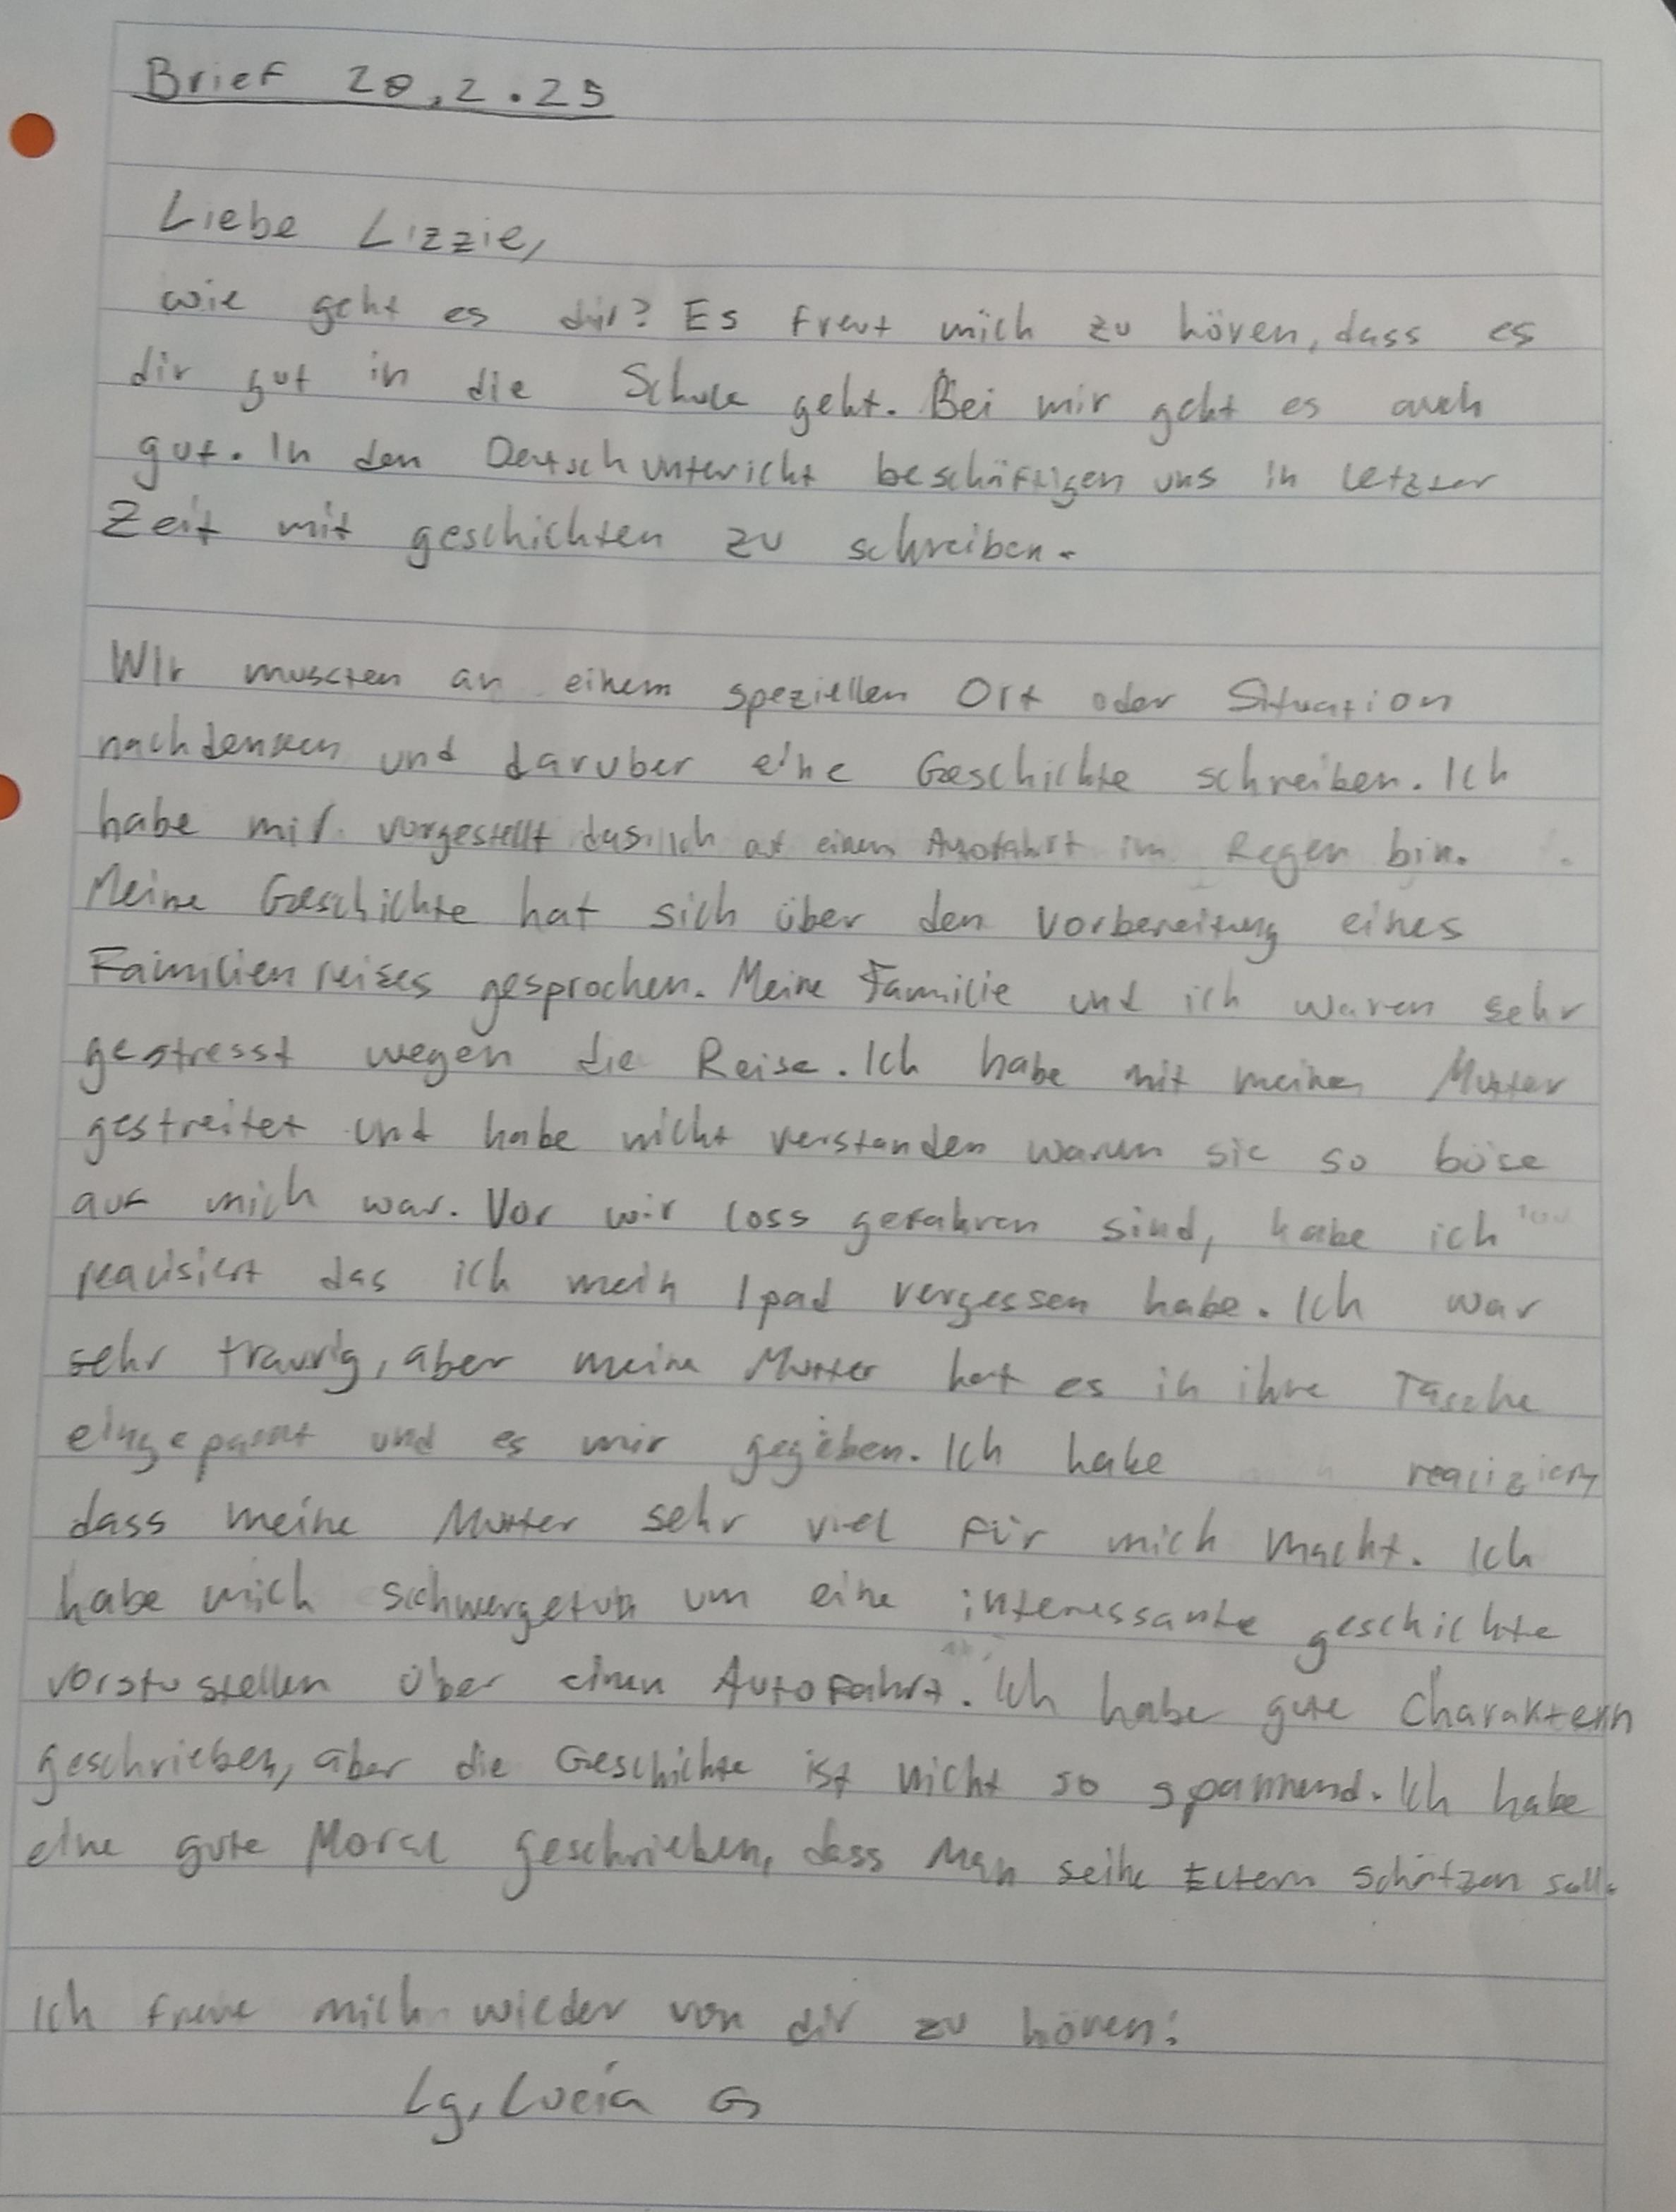 Brief 20.2.25
Liebe Lizzie,
wie geht es dir? Es freut mich zu hören, dass es
dir gut in die Schule geht. Bei mir geht es auch
gut. In den Deutschunterricht beschäftigen uns in letzter
Zeit mit geschichten zu schreiben.
Wir mussten an einem speziellen Ort oder Situation
nachdenken und daruber eine Geschichte schreiben. Ich
habe mir vorgestellt das ich auf einen Autofahrt im Regen bin.
Meine Geschichte hat sich über den Vorbereitung eines
Familienreises gesprochen. Meine Familie und ich waren sehr
gestresst wegen die Reise. Ich habe mit meiner Mutter
gestreitet und habe nicht verstanden warum sie so böse
auf mich war. Vor wir loss gefahren sind, habe ich
realisiert das ich mein Ipad vergessen habe. Ich war
sehr traurig, aber meine Mutter hat es in ihre Tasche
eingepackt und es mir gegeben. Ich habe realiziert
dass meine Mutter sehr viel für mich macht. Ich
habe mich schwergetun um eine interessante geschichte
vorstustellen über einen Autofahrt. Ich habe gute Charaktern
geschrieben, aber die Geschichte ist nicht so spannend. Ich habe
eine gute Moral geschrieben, dass man seine Eltern schätzen soll.
Ich freue mich wieder von dir zu hören!
Lg, Lucía G